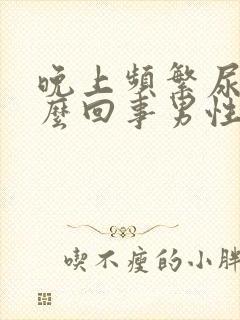 晚上頻繁尿
麽回事男性
喫不瘦的小胖